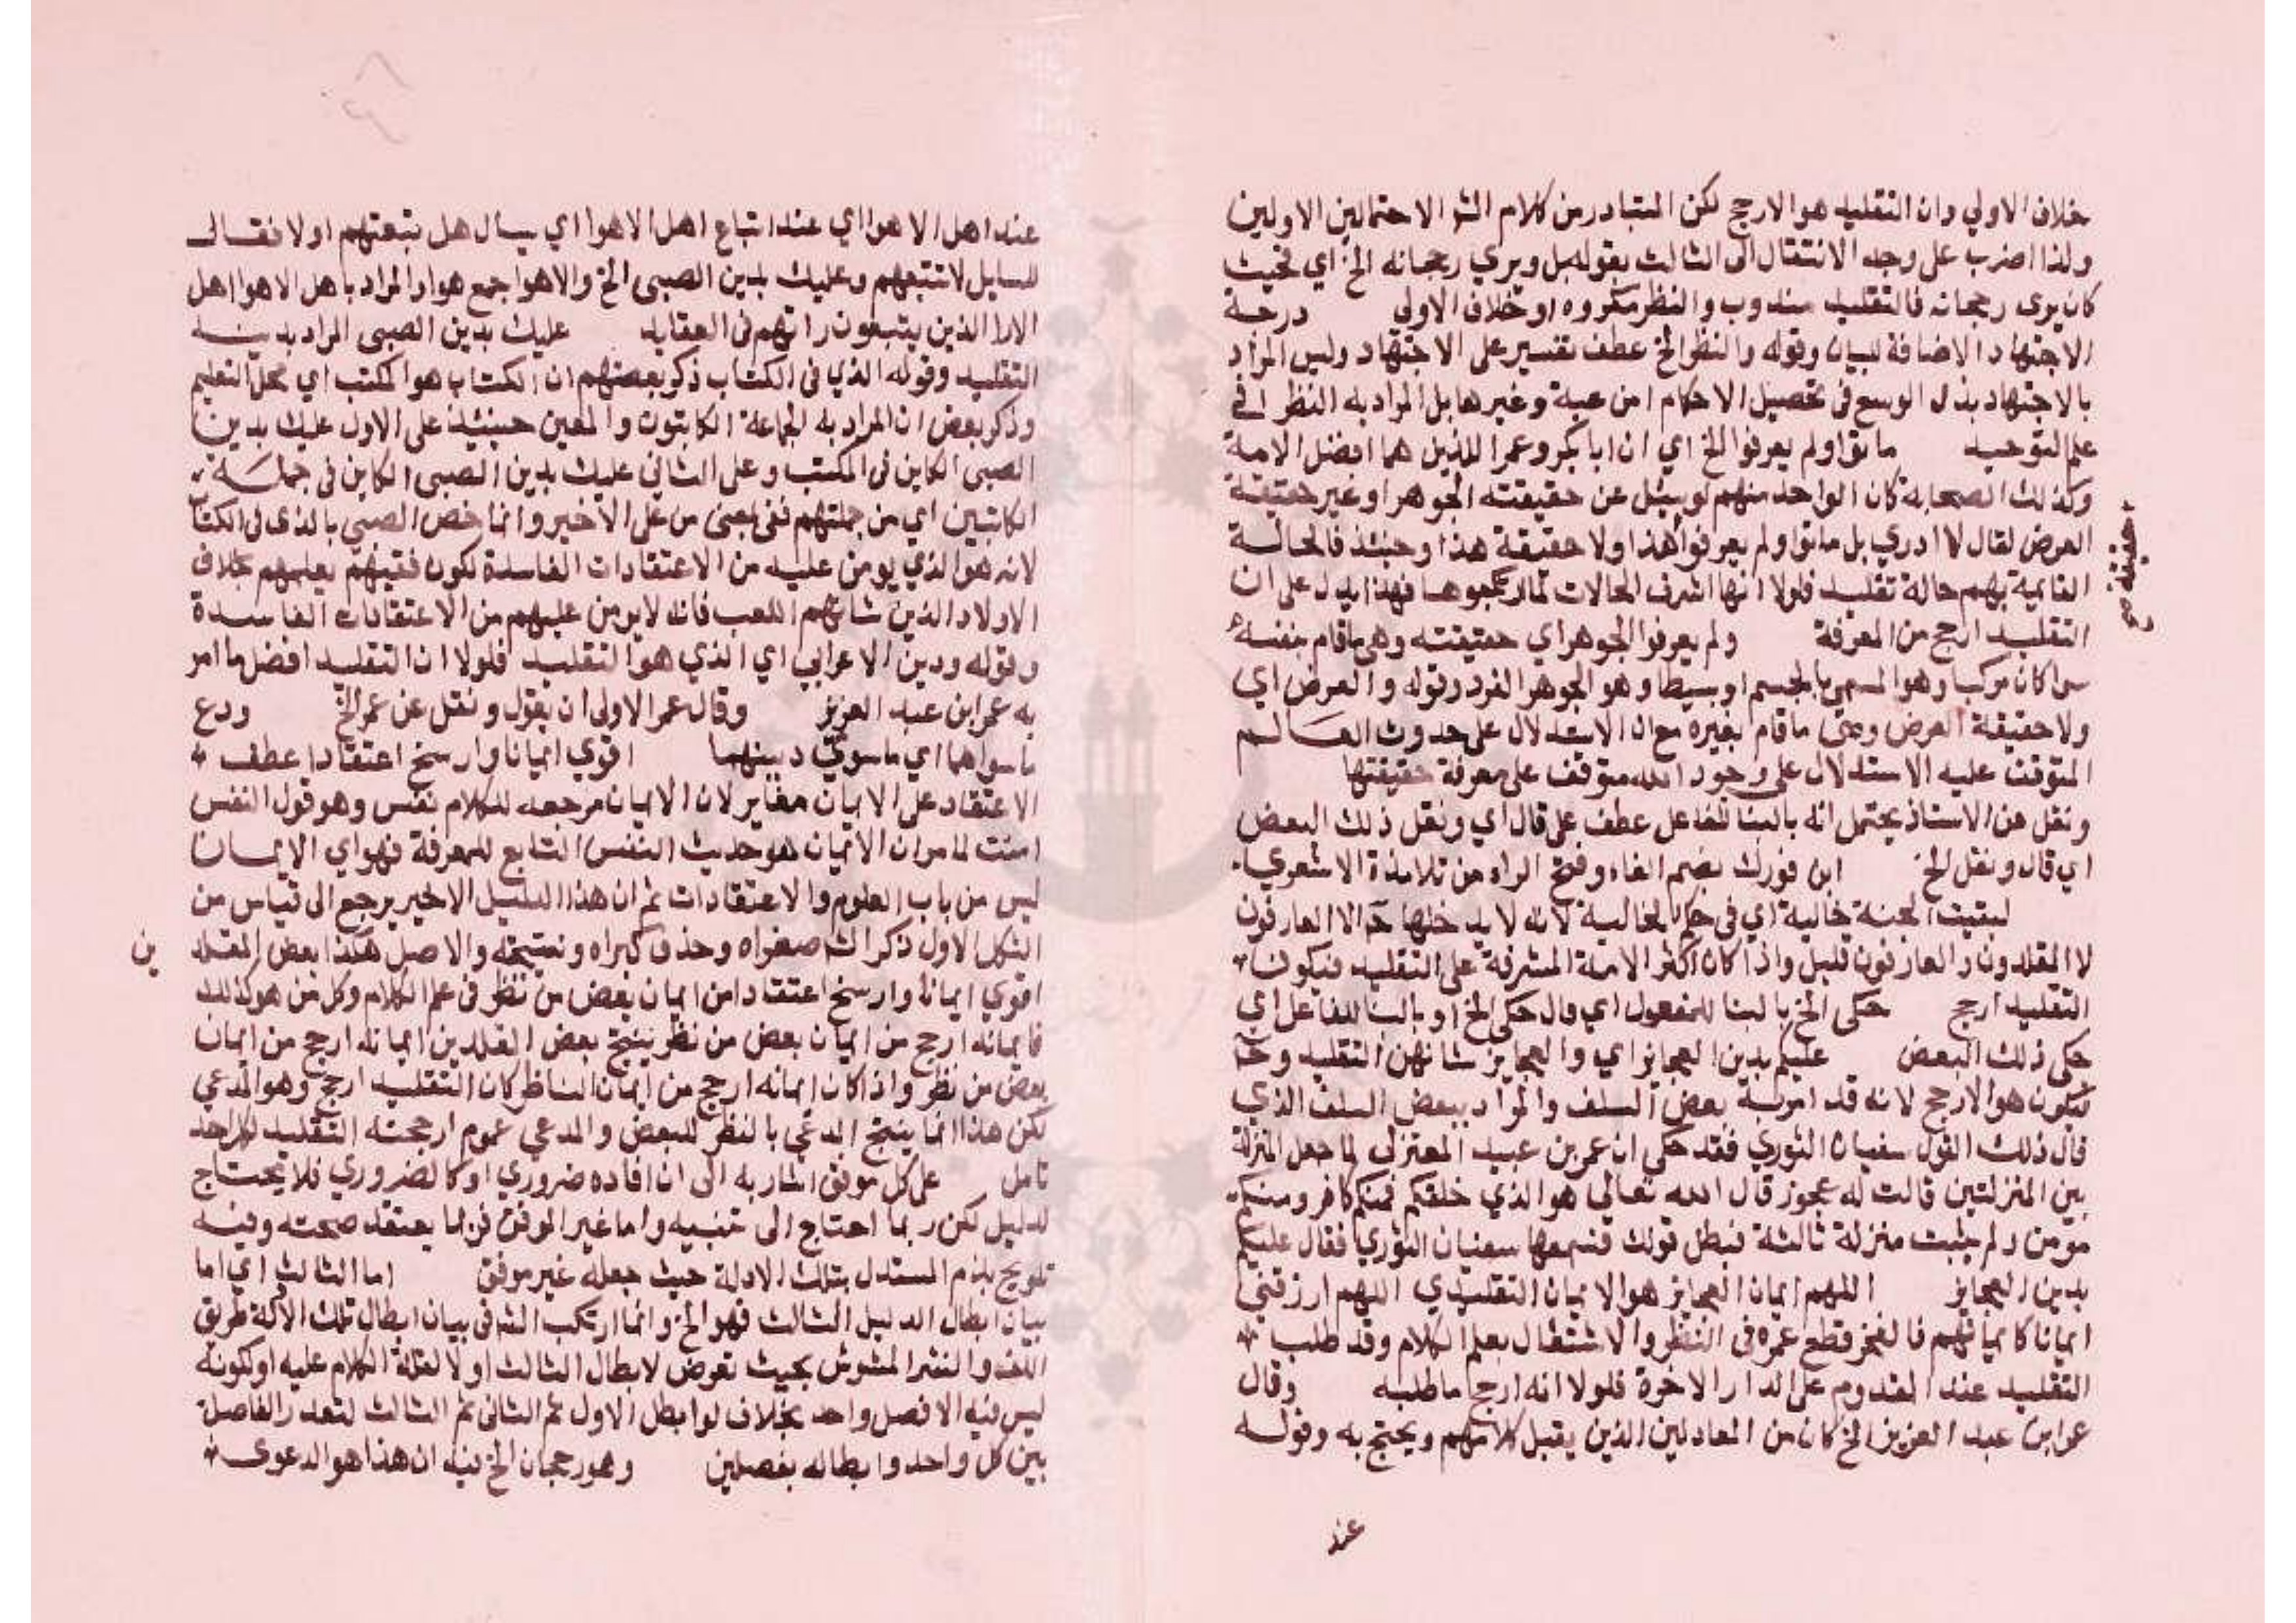 خلاف الاولي وان التقليد هو الارجح لكن المتبادر من كلام الشر الاحتمالين الاولين
ولذا اضرب على وجه الانتقال الى الثالث بقوله بل ويري رجحانه الخ اي فحيث
كان يرى رجحانه فالتقليد مندوب والنظر مكروه او خلاف الاولى درجة
الاجتهاد الاضافة للبيان وقوله والنظر الخ عطف تفسير على الاجتهاد وليس المراد
بالاجتهاد بذل الوسع في تحصيل الاحكام من عبة وغيرها بل المراد به النظر في
علم التوحيد ماتوا ولم يعرفوا الخ اي ان ابا بكر وعمر اللذين هما افضل الامة
وكذلك الصحابة كان الواحد منهم لو سئل عن حقيقته الجوهر او غير حقيقة
العرض لقال لا ادري بل ماتوا ولم يعرفوا هذا ولا حقيقة هذا وحينئذ فالحالة
القائمة بهم حالة تقليد فلولا انها اشرف الحالات لما رجحوها فهذا يدل على ان
التقليد ارجح من المعرفة ولم يعرفوا الجوهر اي حقيقته وهي ما قام بنفسه
سوا كان مركبا وهو المسمى بالجسم او بسيطا وهو الجوهر الفرد وقوله والعرض اي
ولا حقيقة العرض وهي ما قام بغيره مع ان الاستدلال على حدوث العالم
المتوقف عليه الاستدلال على وجود الله متوقف على معرفة حقيقتها
ونقل عن الاستاذ يحتمل انه بالبنا للفاعل عطف على قال اي ونقل ذلك البعض
اي قال ونقل الخ ابن فورك بضم الفاء وفتح الراء من تلامذة الاشعري
لبقيت الجنة خالية اي في حكم الخالية لانه لا يدخلها ح الا العارفون
لا المقلدون والعارفون قليل واذا كان اكثر الامة المشرفة على التقليد فيكون
التقليد ارجح حكى الخ بالبنا للمفعول اي قال حكى الخ او بالبنا للفاعل اي
حكى ذلك البعض عليكم بدين العجائز اي والعجايز شانهن التقليد وح
فيكون هو الارجح لانه قد امر به بعض السلف والمراد ببعض السلف الذي
قال ذلك القول سفيان الثوري فقد حكى ان عمر بن عبيد المعتزلي لما جعل المنزلة
بين المنزلتين قالت له عجوز قال الله تعالى هو الذي خلقكم فمنكم كافر ومنكم
مومن ولم يثبت منزلة ثالثة فبطل قولك فسمعها سفيان الثوري فقال عليكم
بدين العجايز اللهم ايمان العجايز هو الايمان التقليدي اللهم ارزقني
ايمانا كايمانهم فالفخر قطع عمره في النظر والاشتغال بعلم الكلام وقد طلب
التقليد عند القدوم على الدار الاخرة فلولا انه ارجح ما طلبه وقال
عمر ابن عبد العزيز الخ كان من العادلين الذين يقبل كلامهم ويحتج به وقوله
عند
حقيقة صح
عند اهل الاهوا اي عند اتباع اهل الاهوا اي يسال هل نتبعتهم اولا فقال
للسايل لا تتبعهم وعليك بدين الصبى الخ والاهوا جمع هوا والمراد باهل الاهوا اهل
الارا الذين يتبعون راتهم في العقايد عليك بدين الصبى المراد بدينه
التقليد وقوله الذي في الكتاب ذكر بعضهم ان الكتاب هو المكتب اي محل التعليم
وذكر بعض ان المراد به الجماعة الكاتبون والمعين حينئذ على الاول عليك بدين
الصبى الكاين في المكتب وعلى الثاني عليك بدين الصبى الكاين في جملة
الكاتبين اي من جملتهم ففي بمعنى من على الاخير وانما خص الصبى بالذي في الكتاب
لانه هو الذي يومن عليه من الاعتقادات الفاسدة لكون فقيههم يعلمهم بخلاف
الاولاد الذين شانهم اللعب فانه لا يومن عليهم من الاعتقادات الفاسدة
وقوله ودين الاعرابي اي الذي هو التقليد فلولا ان التقليد افضل ما امر
به عمر ابن عبد العزيز وقال عمر الاولى ان يقول ونقل عن عمر الخ ودع
ما سواهما اي ما سوى دينهما اقوي ايمانا وارسخ اعتقادا عطف
الاعتقاد على الايمان مغاير لان الايمان مرجعه للكلام نفس وهو قول النفس
امنت لما مر ان الايمان هو حديث النفس التابع للمعرفة فهو اي الايمان
ليس من باب العلوم والاعتقادات ثم ان هذا الدليل الاخير يرجع الى قياس من
الشكل الاول ذكر الش صغراه وحذف كبراه ونتيجته والاصل هكذا بعض المقلدين
اقوي ايمانا وارسخ اعتقادا من ايمان بعض من نظر في علم الكلام وكل من هو كذلك
فايمانه ارجح من ايمان بعض من نظر ينتج بعض المقلدين ايمانه ارجح من ايمان
بعض من نظر واذا كان ايمانه ارجح من ايمان الناظر كان التقليد ارجح وهو المدعي
لكن هذا انما ينتج المدعي بالنظر للبعض والمدعي عموم ارجحته التقليد لكل احد
تامل على كل موفق اشار به الى ان افاده ضروري او كالضروري فلا يحتاج
لدليل لكن ربما احتاج الى تنبيه واما غير الموفق فربما يعتقد صحته وفيه
تلويح بذم المستدل بتلك الادلة حيث جعله غير موفق اما الثالث اي اما
بيان ابطال الدليل الثالث فهو الخ وانما ارتكب الش في بيان ابطال تلك الادلة طريق
اللف والنشر المشوش بحيث تعرض لابطال الثالث اولا لقلة الكلام عليه او لكونه
ليس فيه الا فصل واحد بخلاف لو ابطل الاول ثم الثاني ثم الثالث لتعدد الفاصلة
بين كل واحد وابطاله بفصلين وهو رجحان الخ فيه ان هذا هو الدعوى